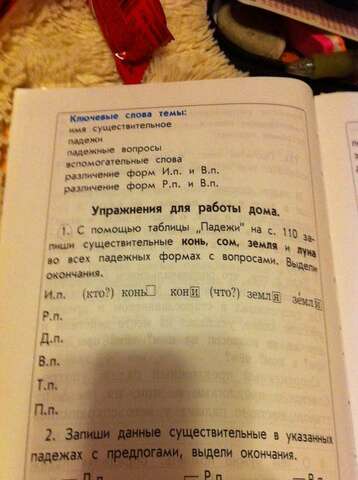 Ключевые слова темы:
имя существительное
падежи
падежные вопросы
вспомогательные слова
различение форм И.п. и В.п.
различение форм Р.п. и В.п.
Упражнения для работы дома.
1. С помощью таблицы „Падежи" на с. 110 за-
пиши существительные конь, сом, земля и луна
во всех падежных формах с вопросами. Выдели
окончания.
И.п. (кто?) конь кони (что?) земля зе́мли
Р.п.
Д.п.
В.п.
Т.п.
П.п.
2. Запиши данные существительные в указанных
падежах с предлогами, выдели окончания.
— Д.п. — Р.п. — В.п.